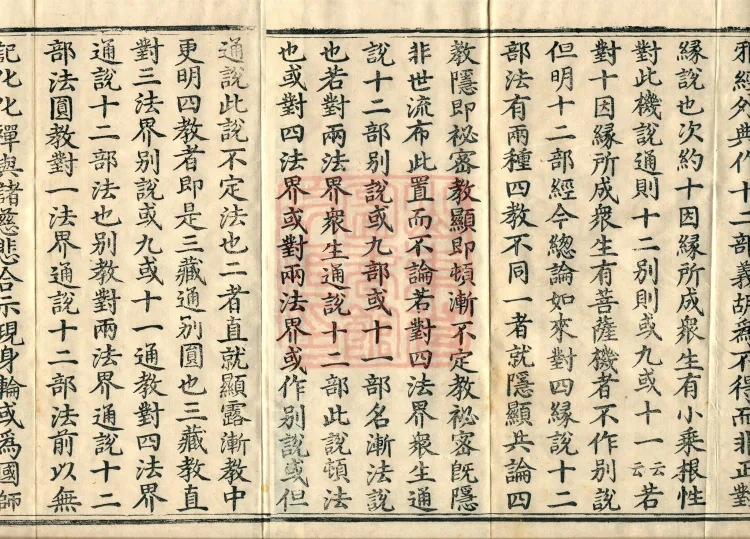 邪經外典作十二部義故為不得而非正對
緣說也次約十因緣所成衆生有小乘根性
對此機說通則十二別則或九或十一云云若
對十因緣所成衆生有菩薩機者不作別說
但明十二部經今緫論如來對四緣說十二
部法有兩種四教不同一者就隱顯共論四
教隱即祕密教顯即頓漸不定教祕密旣隱
非世流布此置而不論若對四法界衆生通
說十二部別說或九部或十一部名漸法說
也若對兩法界衆生通說十二部此說頓法
也或對四法界或對兩法界或作別說或但
通說此說不定法也二者直就顯露漸教中
更明四教者即是三藏通別圓也三藏教直
對三法界別說或九或十一通教對四法界
通說十二部法也別教對兩法界通說十二
部法圓教對一法界通說十二部法前以無
記化化禪與諸慈悲合示現身輪或為國師